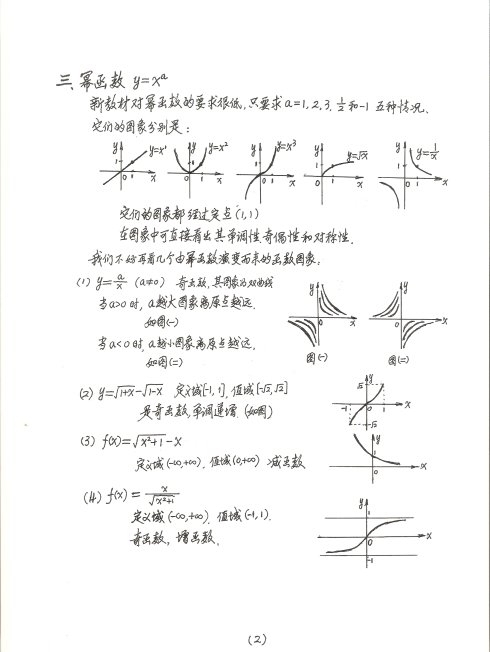 三、幂函数 y=xᵃ
新教材对幂函数的要求很低,只要求a=1,2,3,1/2和-1 五种情况.
它们的图象分别是:
y y=x¹ 1 0 1 x y y=x² 1 0 1 x y y=x³ 1 0 1 x y y=√x 1 0 1 x y y=1/x 1 0 1 x
它们的图象都经过定点(1,1)
在图象中可直接看出其单调性,奇偶性和对称性.
我们不妨再看几个由幂函数演变而来的函数图象.
(1) y=a/x (a≠0) 奇函数,其图象为双曲线
当a>0时, a越大图象离原点越远.
如图(一)
当a<0时, a越小图象离原点越远.
如图(二)
y 0 x 图(一) y 0 x 图(二)
(2) y=√1+x-√1-x 定义域[-1,1], 值域[-√2,√2]
是奇函数,单调递增 (如图)
y √2 -1 0 1 x -√2
(3) f(x)=√x²+1-x
定义域(-∞,+∞), 值域(0,+∞) 减函数
y 1 0 x
(4) f(x)= x/√x²+1
定义域(-∞,+∞), 值域(-1,1).
奇函数, 增函数.
y 1 0 x -1
(2)